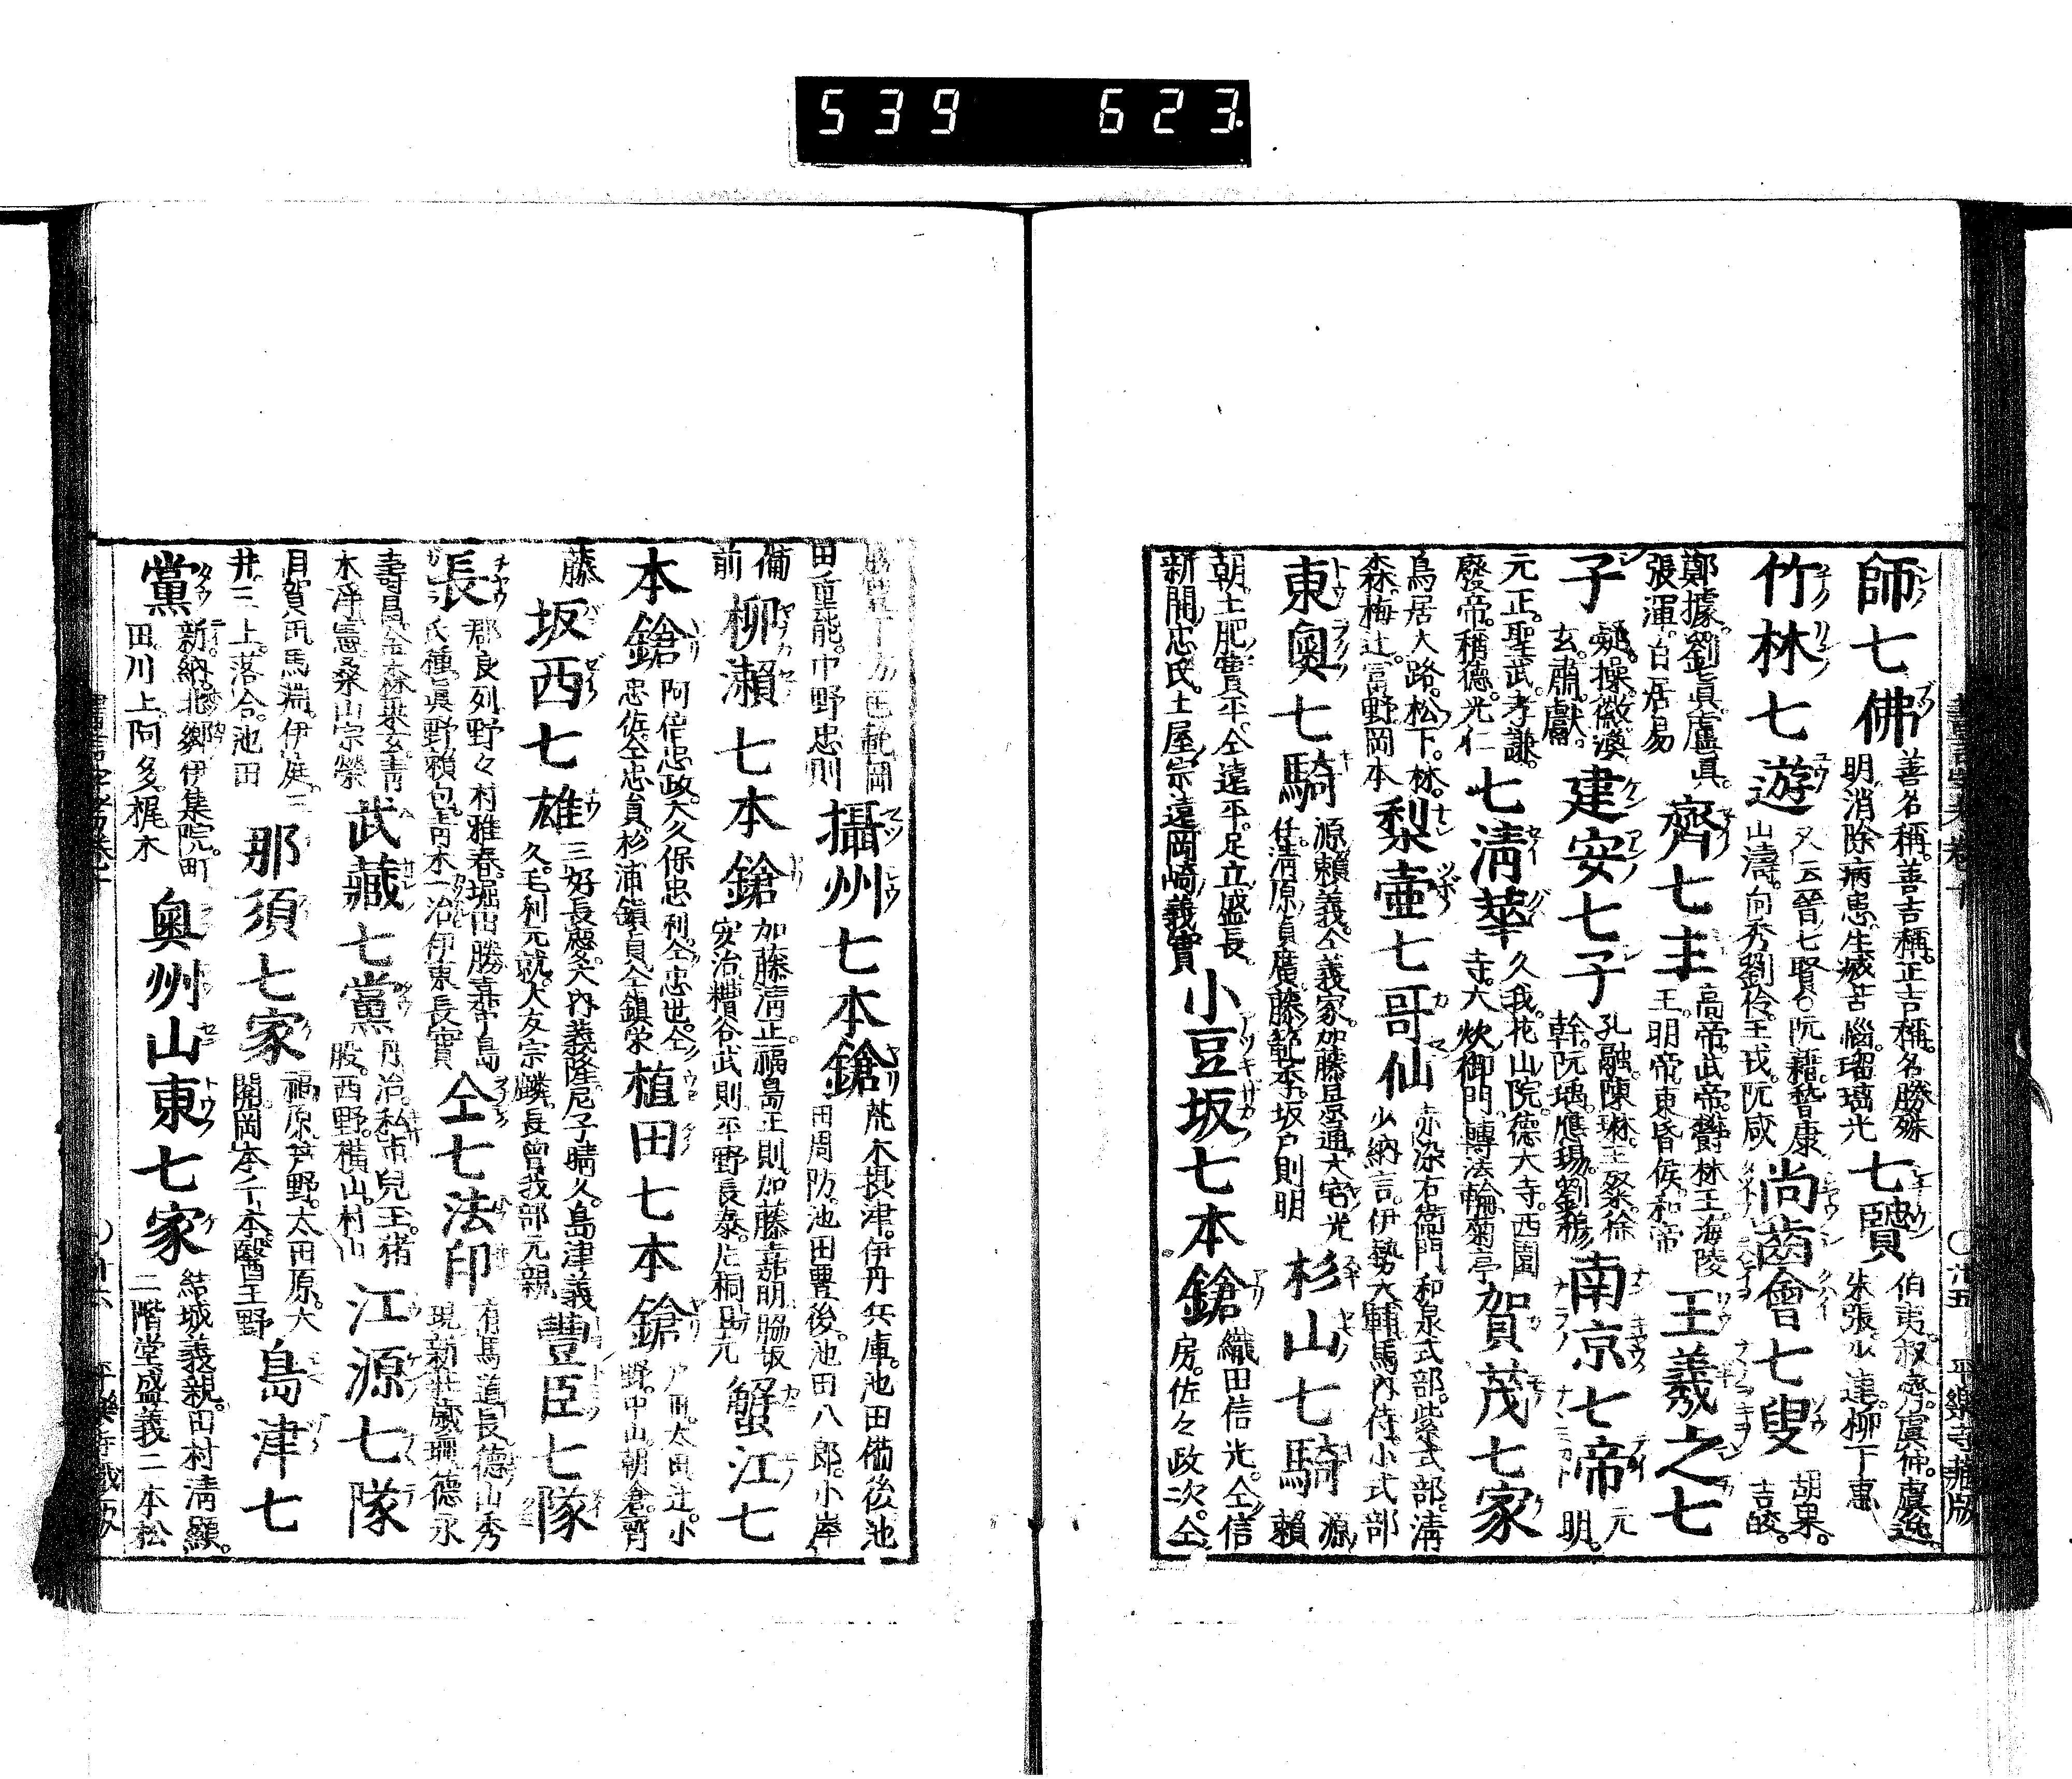 539 623.
師七佛 善名稱。善吉稱。正吉稱。名勝殊
明消除病患生 苦惱。瑠璃光 七賢 伯夷。叔齊。虞仲。虞逸。
朱張。 連。柳下惠
竹林七遊 又云晉七賢。阮籍。嵆康
山濤。向秀。劉伶。王戎。阮咸 尚齒會七叟 胡杲。
吉皎。
鄭據。劉眞。盧眞。
張渾。白居易 齊七主 高帝。武帝。欝林王。海陵
王。明帝。東昏侯。和帝 王羲之七
子 凝。操。徽。渙
玄。肅。獻。 建安七子 孔融。陳琳。王粲。徐
幹。阮瑀。應瑒。劉 南京七帝 元
明。
元正。聖武。孝謙。
廢帝。稱德。光仁 七清華 久我。花山院。德大寺。西園
寺。大炊御門。轉法輪。菊亭 賀茂七家
鳥居大路。松下。林。
森。梅辻。富野。岡本 梨壷七哥仙 赤染右衞門。和泉式部。紫式部。清
少納言。伊勢大輔。馬内侍。小式部
東奥七騎 源賴義。仝義家。加藤 通。大宅光
任。清原貞廣。藤範季。坂戸則明 杉山七騎 源
賴
朝。土肥實平。仝遠平。足立盛長。
新開忠氏。土屋宗遠。岡崎義實 小豆坂七本鎗 織田信光。仝信
房。佐々政次。仝
田重能。中野忠則 攝州七本鎗 荒木摂津。伊丹兵庫。池田備後。池
田周防。池田豊後。池田八郎。小
備
前 柳瀬七本鎗 加藤清正。福島正則。加藤嘉明。脇坂
安治。糟谷武則。平野長泰。片桐且元 蟹江七
本鎗 阿倍忠政。大久保忠利。仝忠世。仝
忠佐。仝忠員。杉浦鎮貞。仝鎮栄 植田七本鎗 戸田。太田。辻。小
野。中山。朝倉。齊
藤 坂西七雄 三好長慶。大内義隆。尼子晴久。島津義
久。毛利元就。大友宗麟。長曾我部元親 豊臣七隊
長 郡良列。野々村雅春。堀田勝嘉。中島
氏種。眞野賴包。青木一治。伊東長實 仝七法印 有馬道 。長德。山秀
現。新莊 。德永
壽昌。金森 玄。青
木淨憲。桑山宗榮 武藏七黨 丹治。私市。兒玉。猪
股。西野。横山。村山 江源七隊
目賀田。馬淵。伊庭。三
井。三上。落合。池田 那須七家 福原。芦野。太田原。大
關。岡本。千本。醫王野 島津七
黨 新納。北鄕。伊集院。町
田。川上。阿多。梶木 奥州山東七家 結城義親。田村清顯。
二階堂盛義。二本松